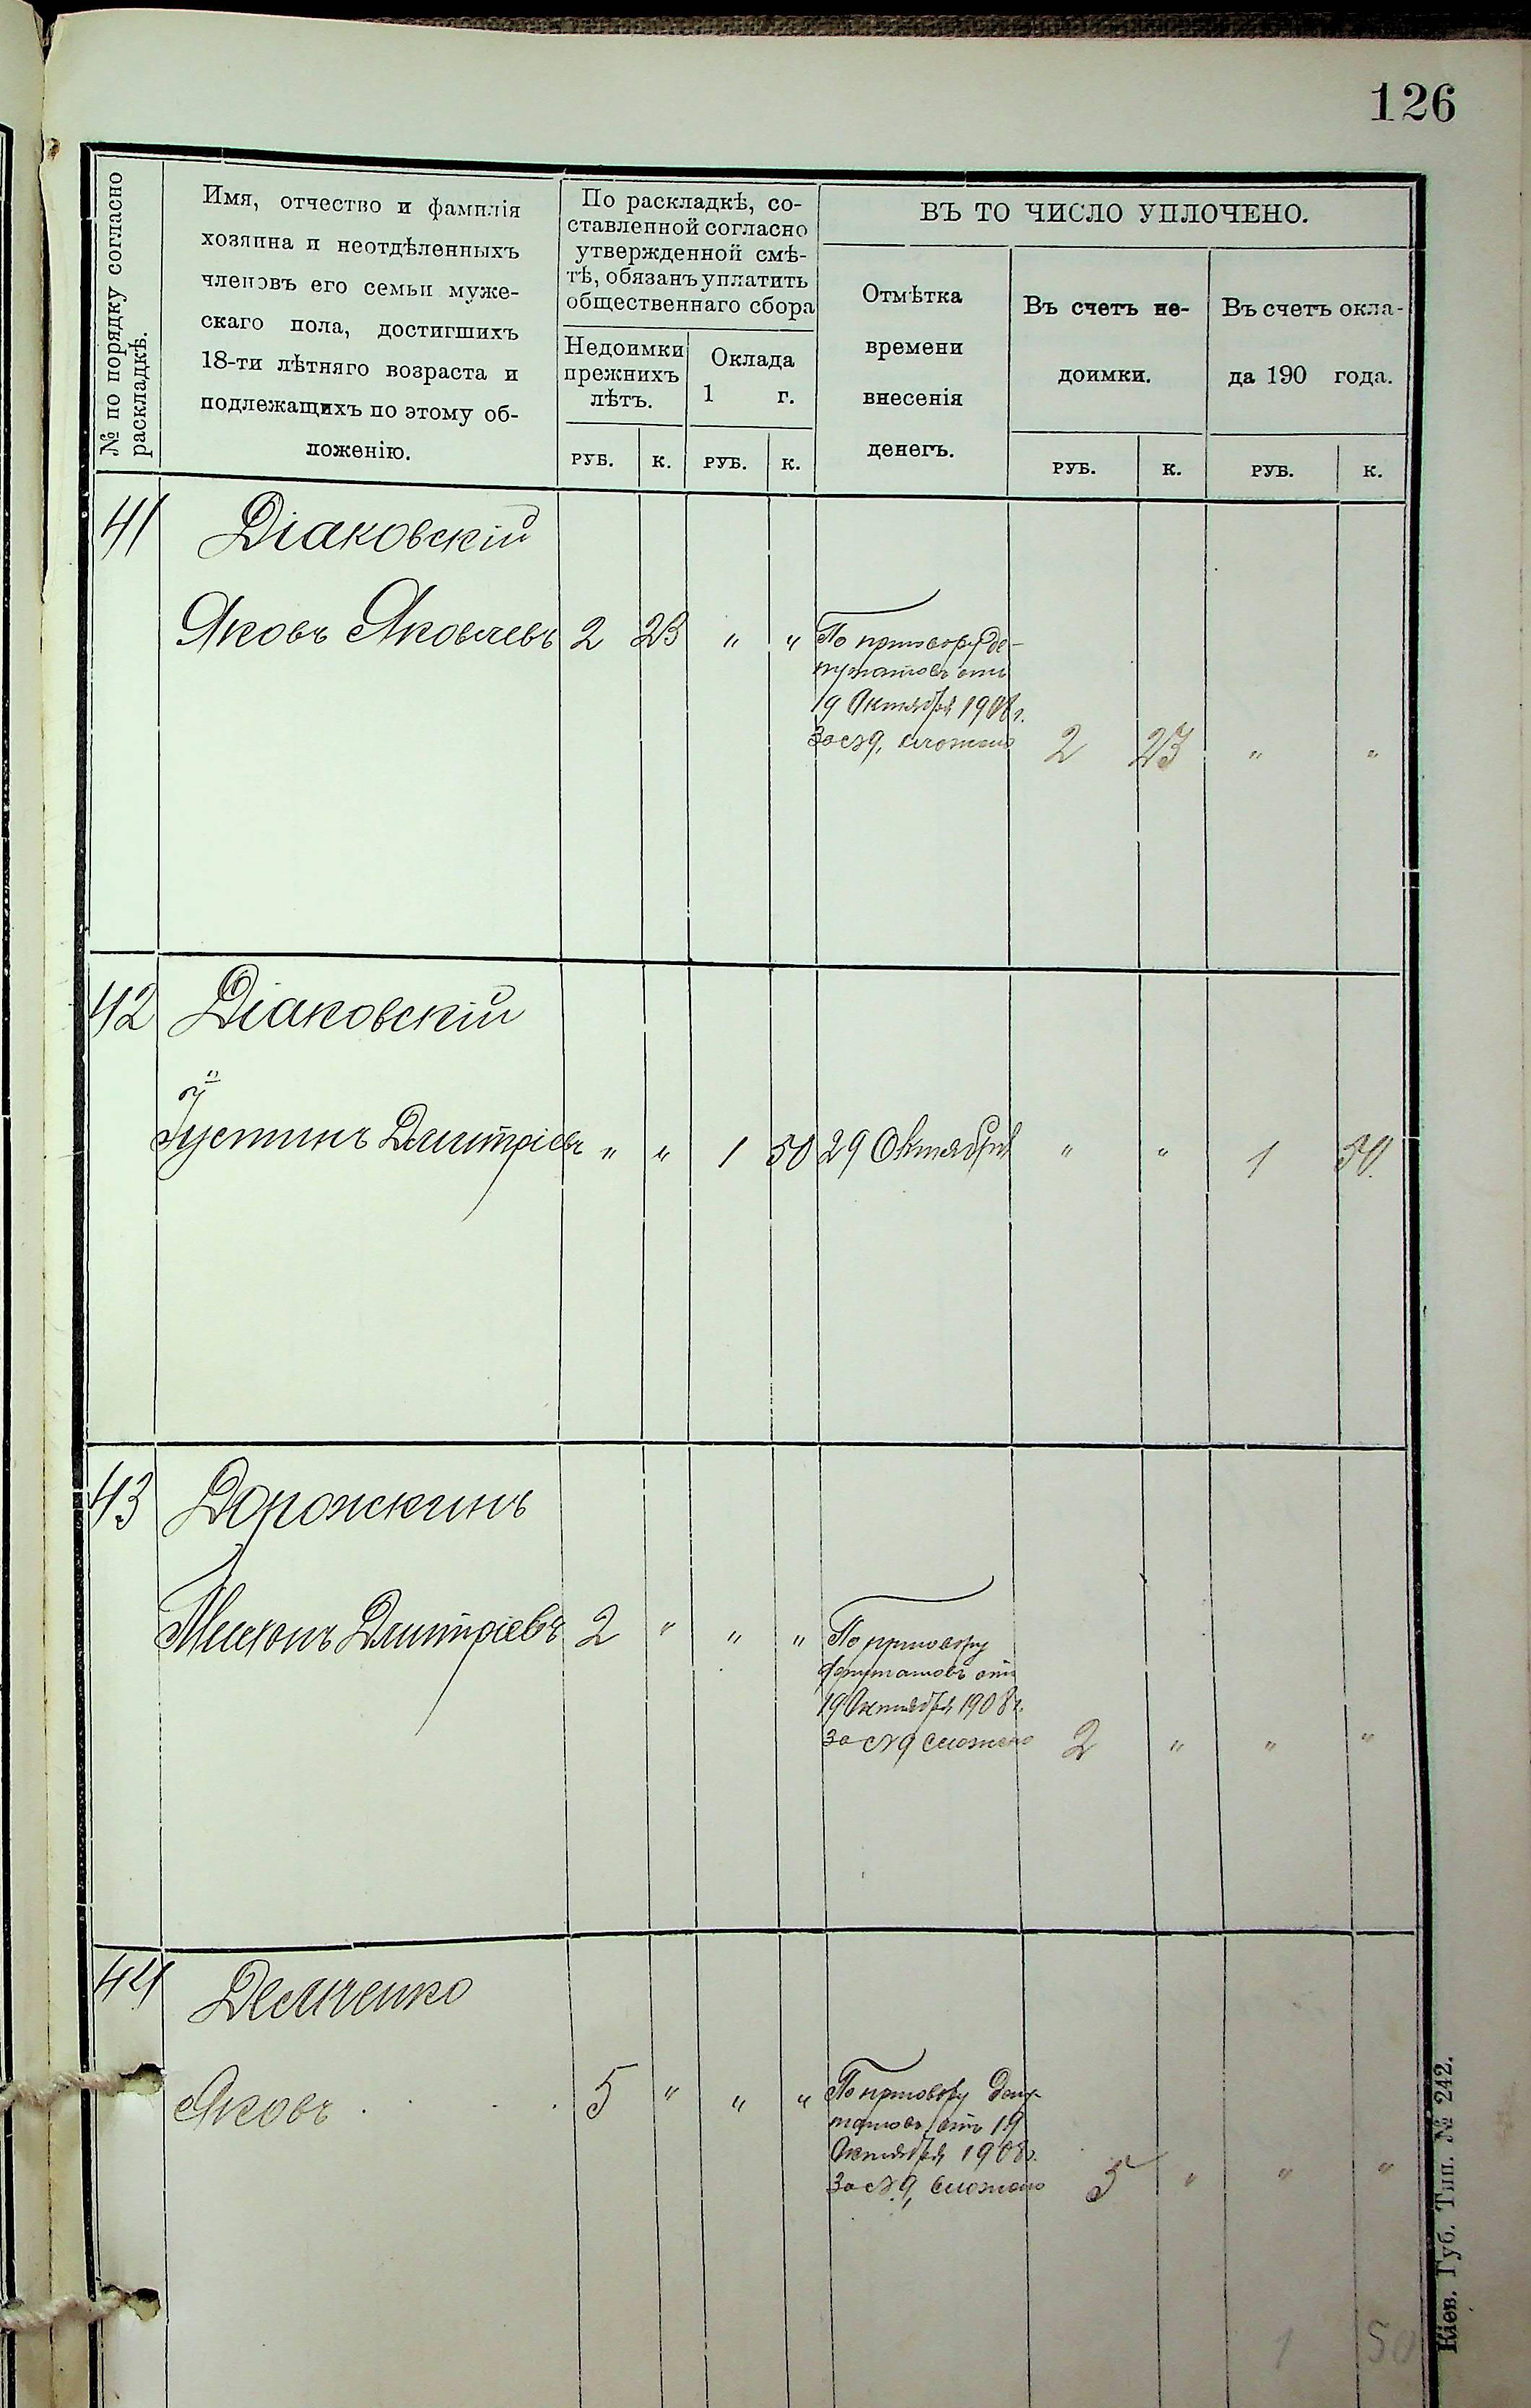 126
№ по порядку согласно
раскладкѣ.
Имя, отчество и фамилія
хозяина и неотдѣленныхъ
членовъ его семьи муже-
скаго пола, достигшихъ
18-ти лѣтняго возраста и
подлежащихъ по этому об-
ложенію.
По раскладкѣ, со-
ставленной согласно
утвержденной смѣ-
тѣ, обязанъ уплатить
общественнаго сбора
Недоимки
прежнихъ
лѣтъ.
Оклада
1 г.
РУБ. К. РУБ. К.
ВЪ ТО ЧИСЛО УПЛОЧЕНО.
Отмѣтка
времени
внесенія
денегъ.
Въ счетъ не-
доимки.
Въ счетъ окла-
да 190 года.
РУБ. К. РУБ. К.
41 Діаковскій
Яковъ Яковлевъ 2 23 " " По приговору де-
путатовъ отъ
19 Октября 1908 г.
за № 9, сложено 2 23 " "
42 Діаковскій
Іустинъ Дмитріевъ " " 1 50 29 Октября " " 1 50
43 Дорожкинъ
Дмитріевъ 2 " " " По приговору
депутатовъ отъ
19 Октября 1908 г.
за № 9 сложено 2 " " "
44 Демченко
Яковъ . . . 5 " " " По приговору депу-
татовъ отъ 19
Октября 1908 г.
за № 9, сложено 5 " " "
1 50
Кіев. Губ. Тип. № 242.